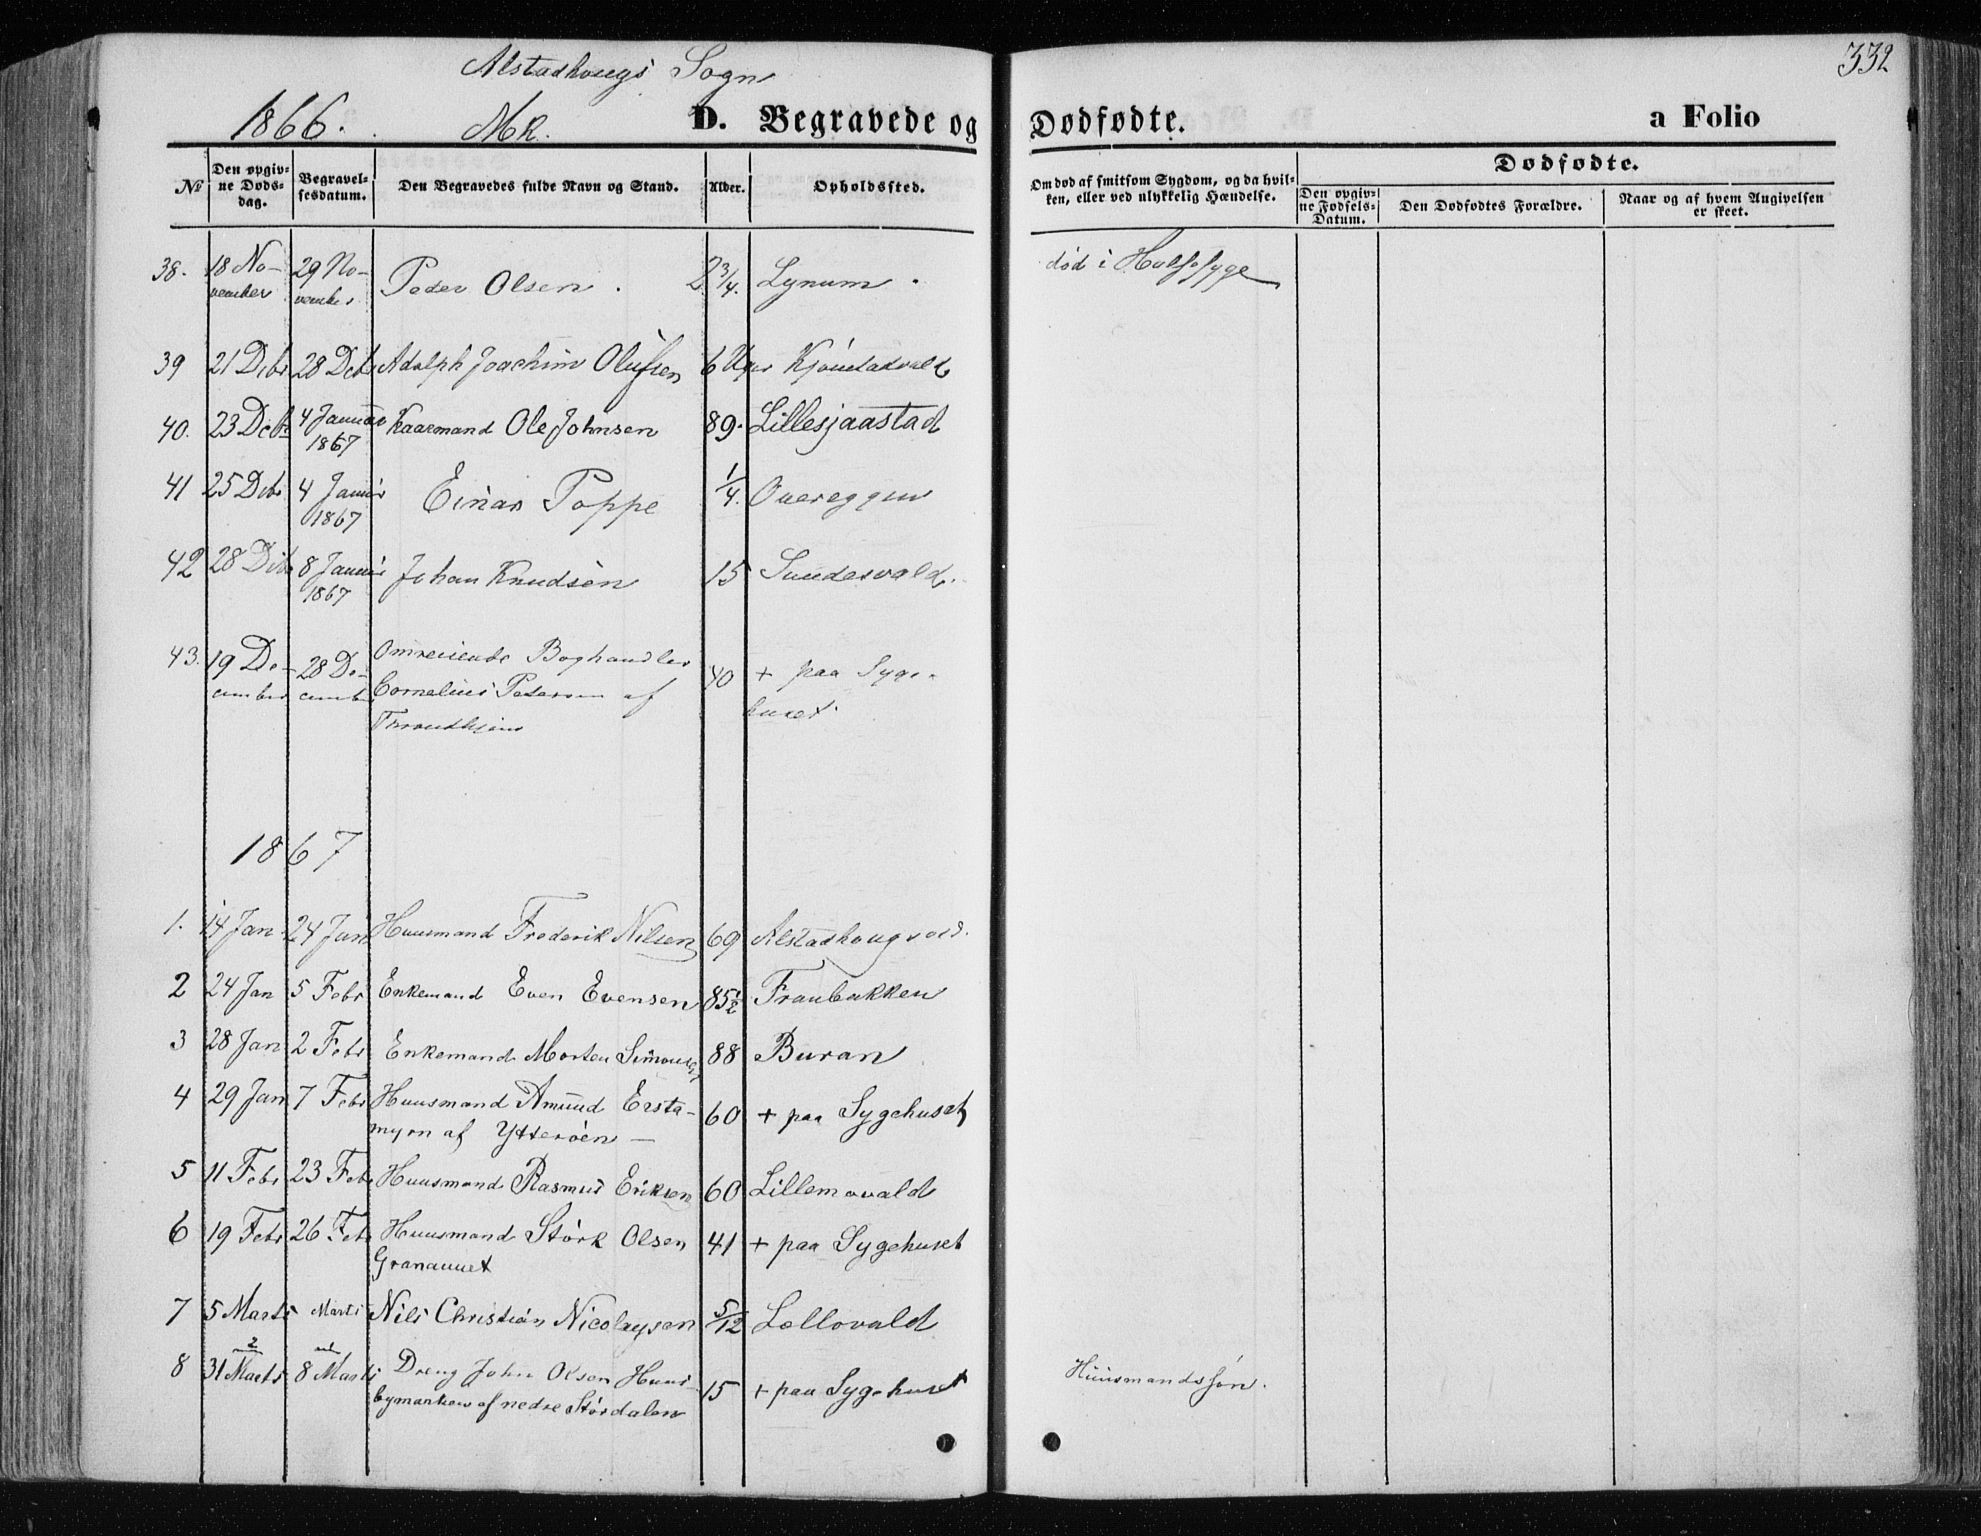 Alstadhougs Sogn
332
1866. Mk. D. Begravede og Dødfødte. a Folio
№
Den opgivne Døds-dag.
Begravelsesdatum.
Den Begravedes fulde Navn og Stand.
Alder.
Opholdssted.
Om død af smitsom Sygdom, og da hvilken, eller ved ulykkelig Hændelse.
Dødfødte.
Den opgivne Fødsels-Datum.
Den Dødfødtes Forældre.
Naar og af hvem Angivelsen er skeet.
38. 18 November 29 November Peder Olsen. 2 3/4. Lynum. død i Halssyge
39 21 Debr 28 Deb Adolph Joachim Olufsen 6 Uger
40. 23 Debr 4 Januar 1867 Kaarmand Ole Johnsen 89. Lillesjaastad
41 25 Debr 4 Januar 1867 Einar Poppe 1/4. Overeggen
42 28 Debr 8 Januar 1867 Johan Knudsen 15 Sundesvald.
43. 19 December 28 December Omreisende Boghandler
Cornelius Petersen af
Throndhjem
40 + paa Syge-
huset.
1867
1. 14 Jan 24 Jan Huusmand Frederik Nilsen 69 Alstadhougvald.
2 24 Jan 5 Febr Enkemand Even Evensen 85 1/2 Fraubakken
3 28 Jan 2 Febr Enkemand Morten Simonsen 88 Buran
4 29 Jan 7 Febr Huusmand Amund Ersta-
myrn af Ytterøen — 60 + paa Sygehuset
5 11 Febr 23 Feb Huusmand Rasmus Eriksen 60 Lillemovald
6 19 Febr 26 Feb Huusmand Størk Olsen 41 + paa Sygehuset
Granaunet
7 5 Marts Marts Nils Christian Nicolaysen 5/12 Lællovald
8 31 Marts 8 Marts Dreng John Olsen Huus-
bymarken af nedre Størdalen 15 + paa Sygehuset Huusmandssøn.